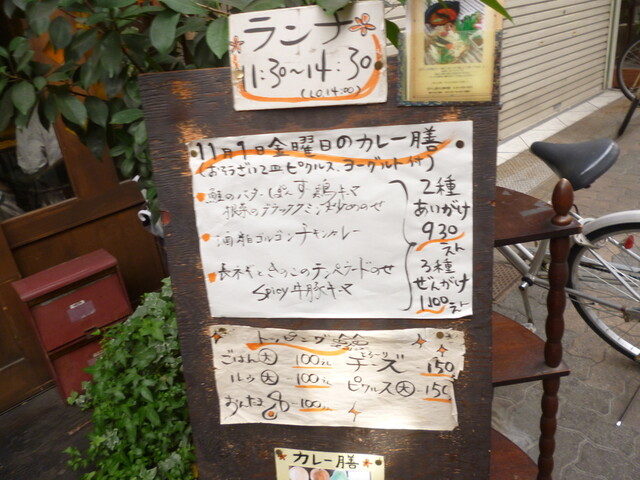 ランチ
11:30~14:30
(LO 14:00)
11月1日金曜日のカレー膳
(おそうざい2皿 ピクルス、ヨーグルト付)
鮭のバターぽんず 鶏キーマ
根菜のブラッククミン炒めのせ
酒粕ゴルゴンチキンカレー
長ネギときのこのテンパードのせ
Spicy牛豚キーマ
2種
あいがけ
930
3種
ぜんがけ
1,100
トッピング
ごはん(大) 100
ルゥ(大) 100
おんたま 100
とろ~り
チーズ 150
ピクルス(大) 150
カレー膳